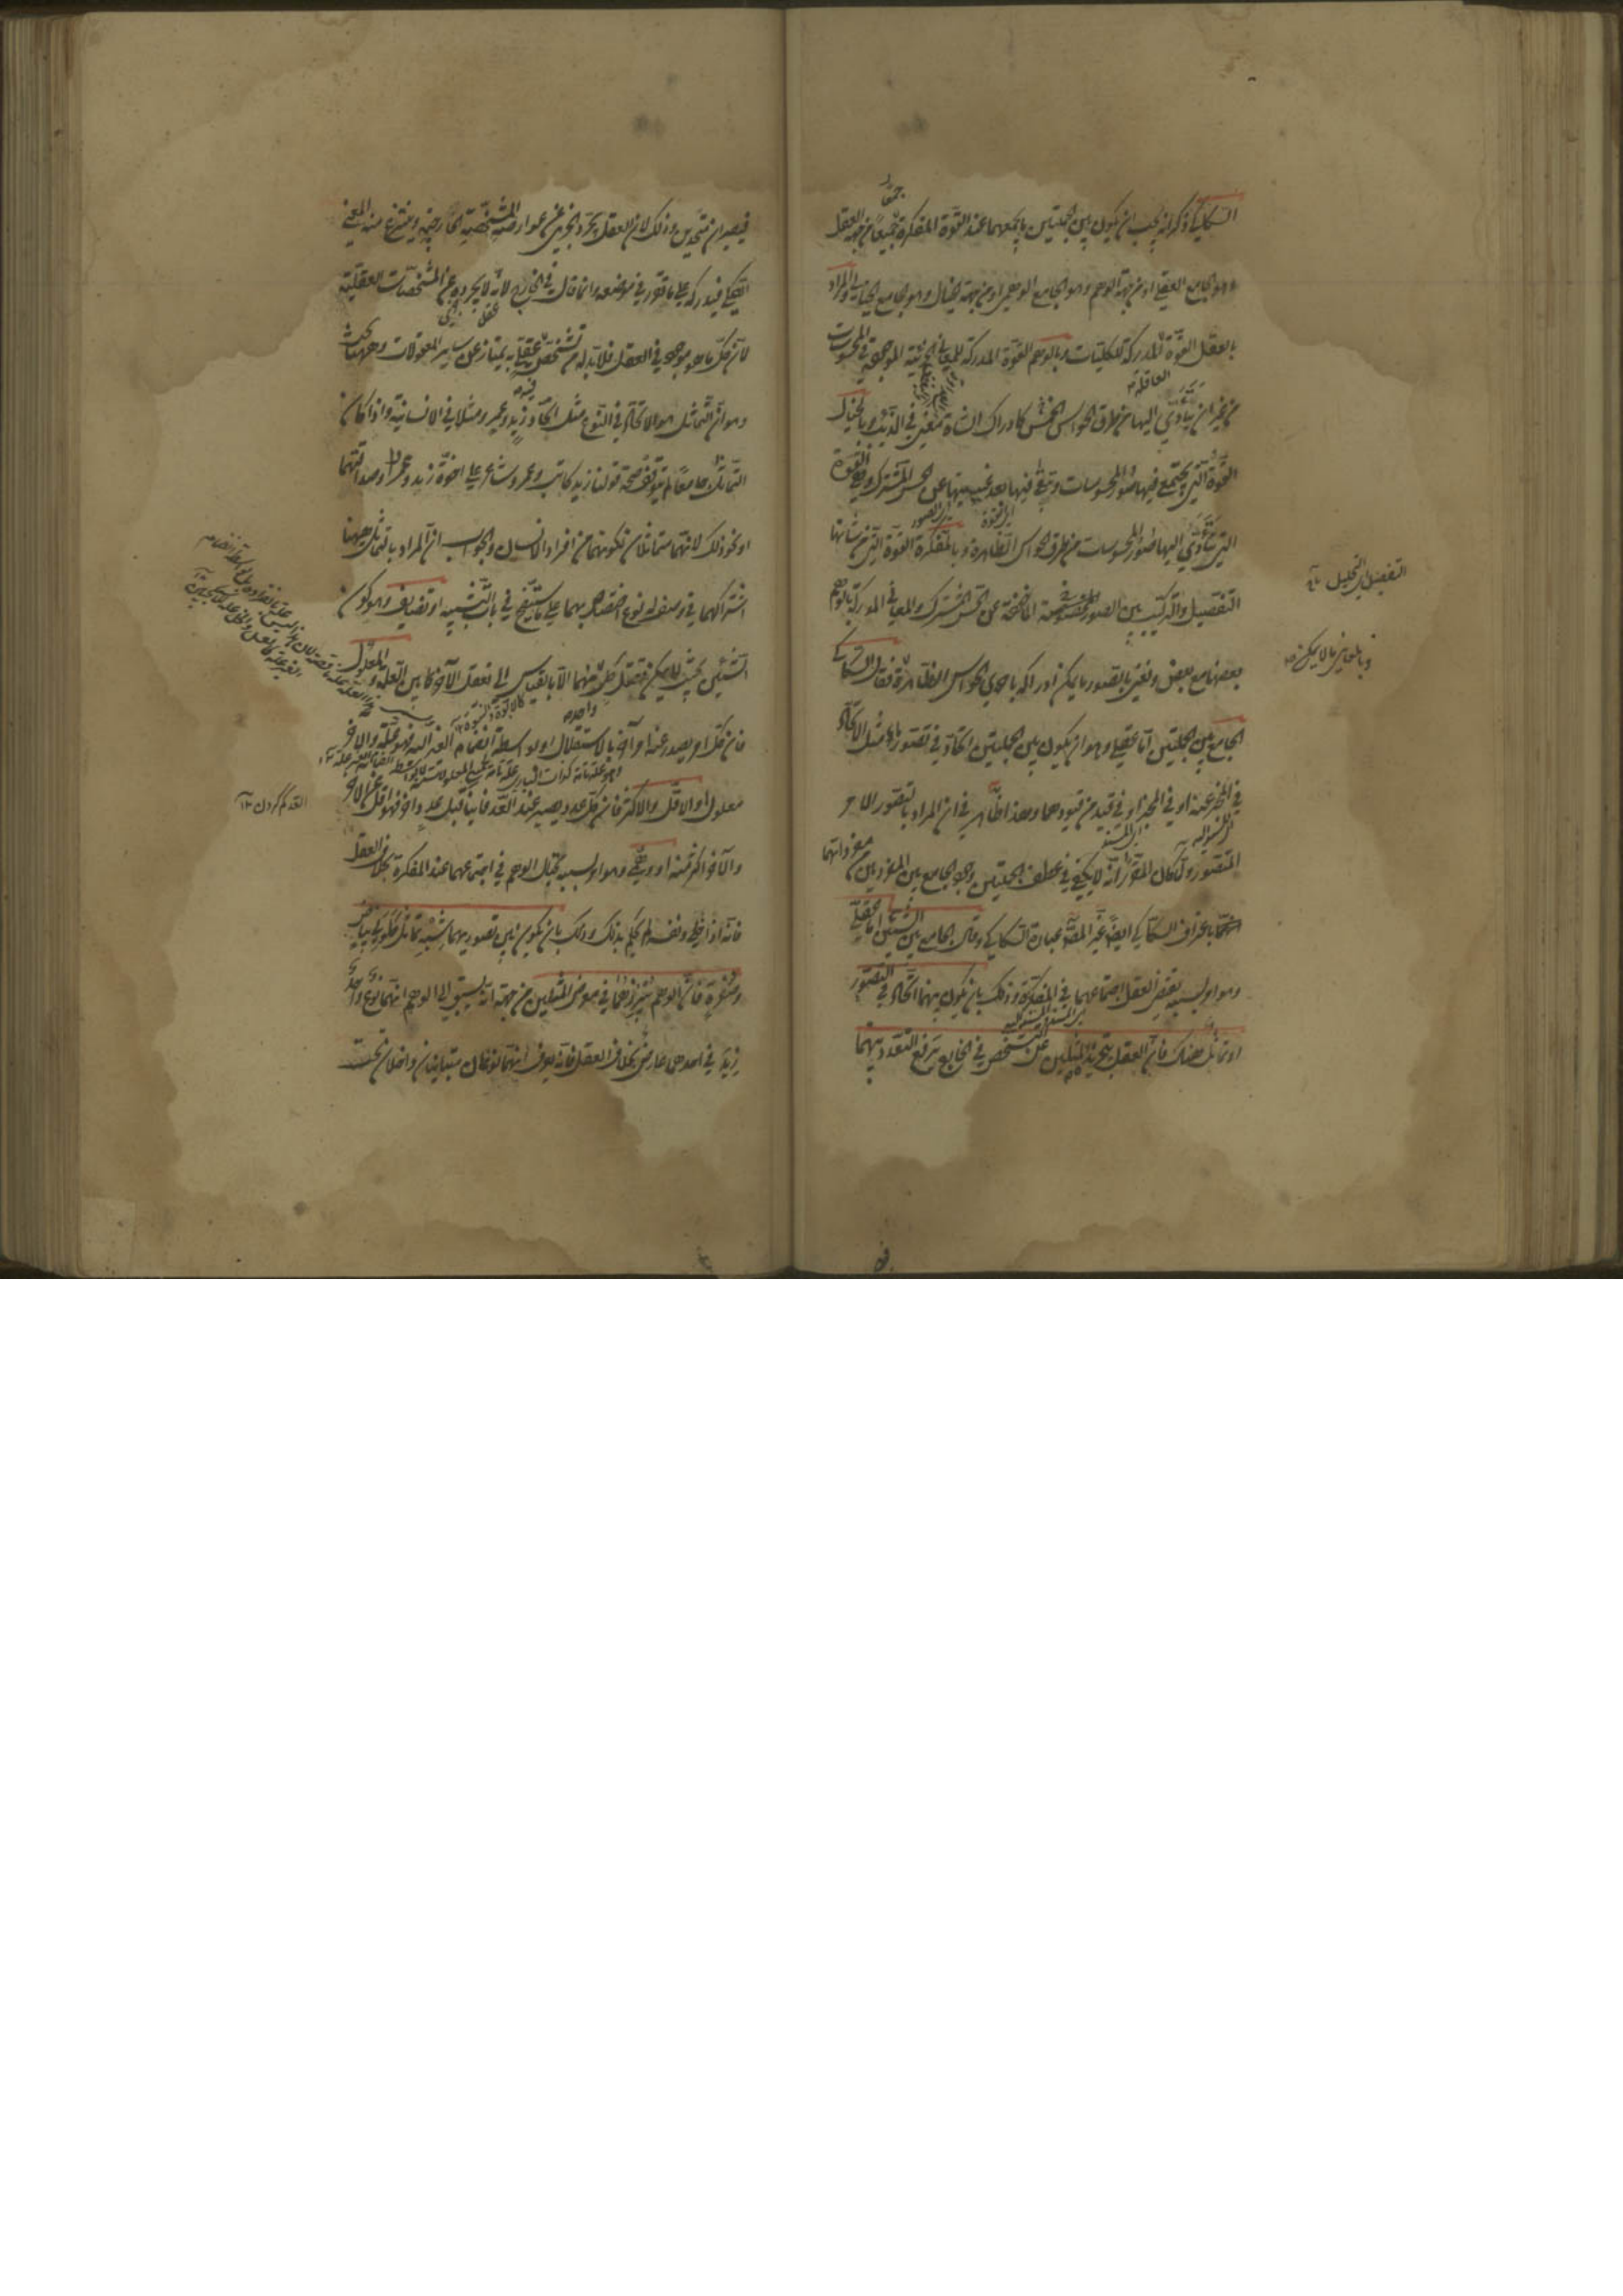 السكاكي ذكر انه يجب ان يكون بين الجملتين ما يجمعهما عند القوة المفكرة جمعا من جهة العقل
وهو الجامع العقلي او من جهة الوهم وهو الجامع الوهمي او من جهة الخيال وهو الجامع الخيالي والمراد
بالعقل القوة المدركة للكليات وبالوهم القوة المدركة للمعاني الجزئية الموجودة في المحسوسات
من غير ان يتأدى اليها من طرق الحواس الخمس كادراك الشاة معنى في الذئب وبالخيال
القوة التي يجتمع فيها صور المحسوسات وتبقى فيها بعد غيبتها عن الحس المشترك وهو القوة
التي يتأدى اليها صور المحسوسات من طرق الحواس الظاهرة وبالمفكرة القوة التي من شانها
التفصيل والتركيب بين الصور المأخوذة عن الحس المشترك والمعاني المدركة بالوهم
بعضها مع بعض ونعني بالصور ما يمكن ادراكه باحدى الحواس الظاهرة فقال السكاكي
الجامع بين الجملتين اما عقلي وهو ان يكون بين الجملتين اتحاد في تصور ما مثل الاتحاد
في المخبر عنه او في الخبر او في قيد من قيودهما وهذا ظاهر في ان المراد بالتصور الامر
المتصور ولما كان المقرر انه لا يكفي في عطف الجملتين وجود الجامع بين المفردين من مفرداتهما
باعتراف السكاكي ايضا غير المصنف عبارة السكاكي وقال الجامع بين الشيئين اما عقلي
وهو امر بسببه يقتضي العقل اجتماعهما في المفكرة وذلك بان يكون بينهما اتحاد في التصور
او تماثل هناك فان العقل بتجريد المثلين عن التشخص في الخارج يرفع التعدد بينهما
التفصيل اي التحليل
وبالمعاني ما لا يمكن
فيصيران متحدين وذلك لان العقل يجرد الجزئي عن عوارضه المشخصة الخارجية وينتزع منه المعنى
الكلي فيدركه على ما تقرر في موضعه وانما قال في الخارج لانه لا يجرده عن المشخصات العقلية
لان كل ما هو موجود في العقل فلا بد له من تشخص عقلي به يمتاز عن سائر المعقولات وههنا بحث
وهو ان التماثل هو الاتحاد في النوع مثل اتحاد زيد وعمرو مثلا في الانسانية واذا كان
التماثل جامعا لم يتوقف صحة قولنا زيد كاتب وعمرو شاعر على اخوة زيد وعمرو وصداقتهما
او نحو ذلك لانهما متماثلان لكونهما من افراد الانسان والجواب ان المراد بالتماثل ههنا
اشتراكهما في وصف له نوع اختصاص بهما على ما سيتضح في باب التشبيه او تضايف وهو كون
الشيئين بحيث لا يمكن تعقل كل منهما الا بالقياس الى تعقل الآخر كما بين العلة والمعلول
فان كل امر يصدر عنه امر آخر بالاستقلال او بواسطة انضمام الغير اليه فهو علة والآخر
معلول او الاقل والاكثر فان كل عدد يصير عند العد فانيا قبل عدد آخر فهو اقل من الآخر
والآخر اكثر منه او وهمي وهو امر بسببه يحتال الوهم في اجتماعهما عند المفكرة بخلاف العقل
فانه اذا خلي ونفسه لم يحكم بذلك وذلك بان يكون بين تصوريهما شبه تماثل كلوني بياض
وصفرة فان الوهم يبرزهما في معرض المثلين من جهة انه يسبق الى الوهم انهما نوع واحد
زيد في احدهما عارض بخلاف العقل فانه يعرف انهما نوعان متباينان داخلان تحت
العد كم كردن